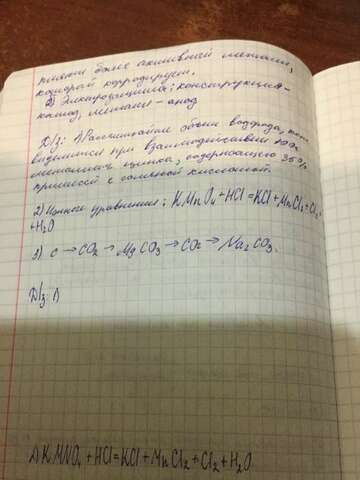 более активный металл,
который корродирует.
2) Электрозащита; конструкция-
катод, металл - анод
Д/з: 1) Рассчитайте объем водорода,
выделится при взаимодействии
цинка, содержащего 35%
примесей с соляной кислотой.
2) уравнения: KMnO4 + HCl = KCl + MnCl2 + Cl2 +
+ H2O
3) C → CO2 → MgCO3 → CO2 → Na2CO3.
Д/з: 1)
2) KMNO4 + HCl = KCl + MnCl2 + Cl2 + H2O